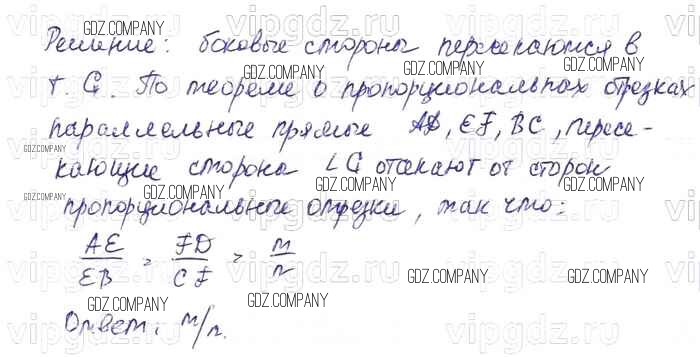 Решение: боковые стороны пересекаются в
т. G. По теореме о пропорциональных отрезках
параллельные прямые AD, EF, BC, пересе-
кающие стороны ∠G отсекают от сторон
пропорциональные отрезки, так что:
AE/EB = FD/CF = m/n
Ответ: m/n.
GDZ.COMPANY
vipgdz.ru